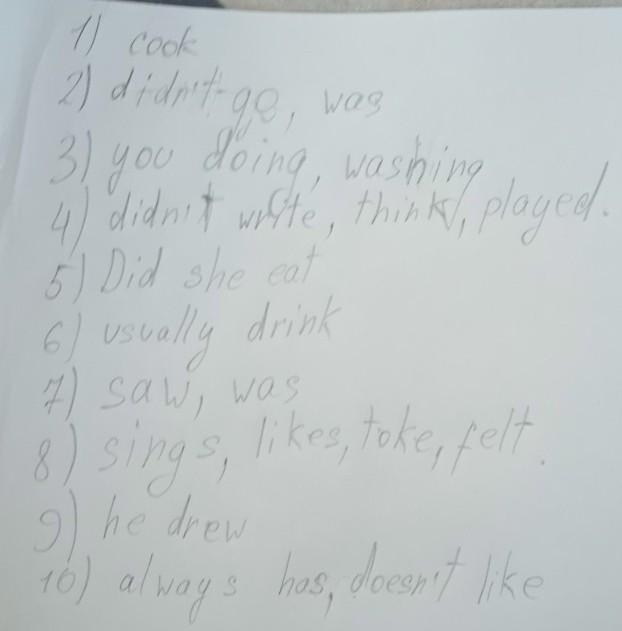 1) cook
2) didn't go, was
3) you doing, washing
4) didn't write, think, played.
5) Did she eat
6) usually drink
7) saw, was
8) sings, likes, toke, felt.
9) he drew
10) always has, doesn't like